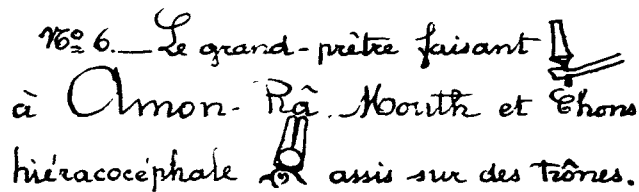 Nº 6. — Le grand-prêtre faisant
à Amon-Râ. Mouth et Chons
hiéracocéphale assis sur des trônes.